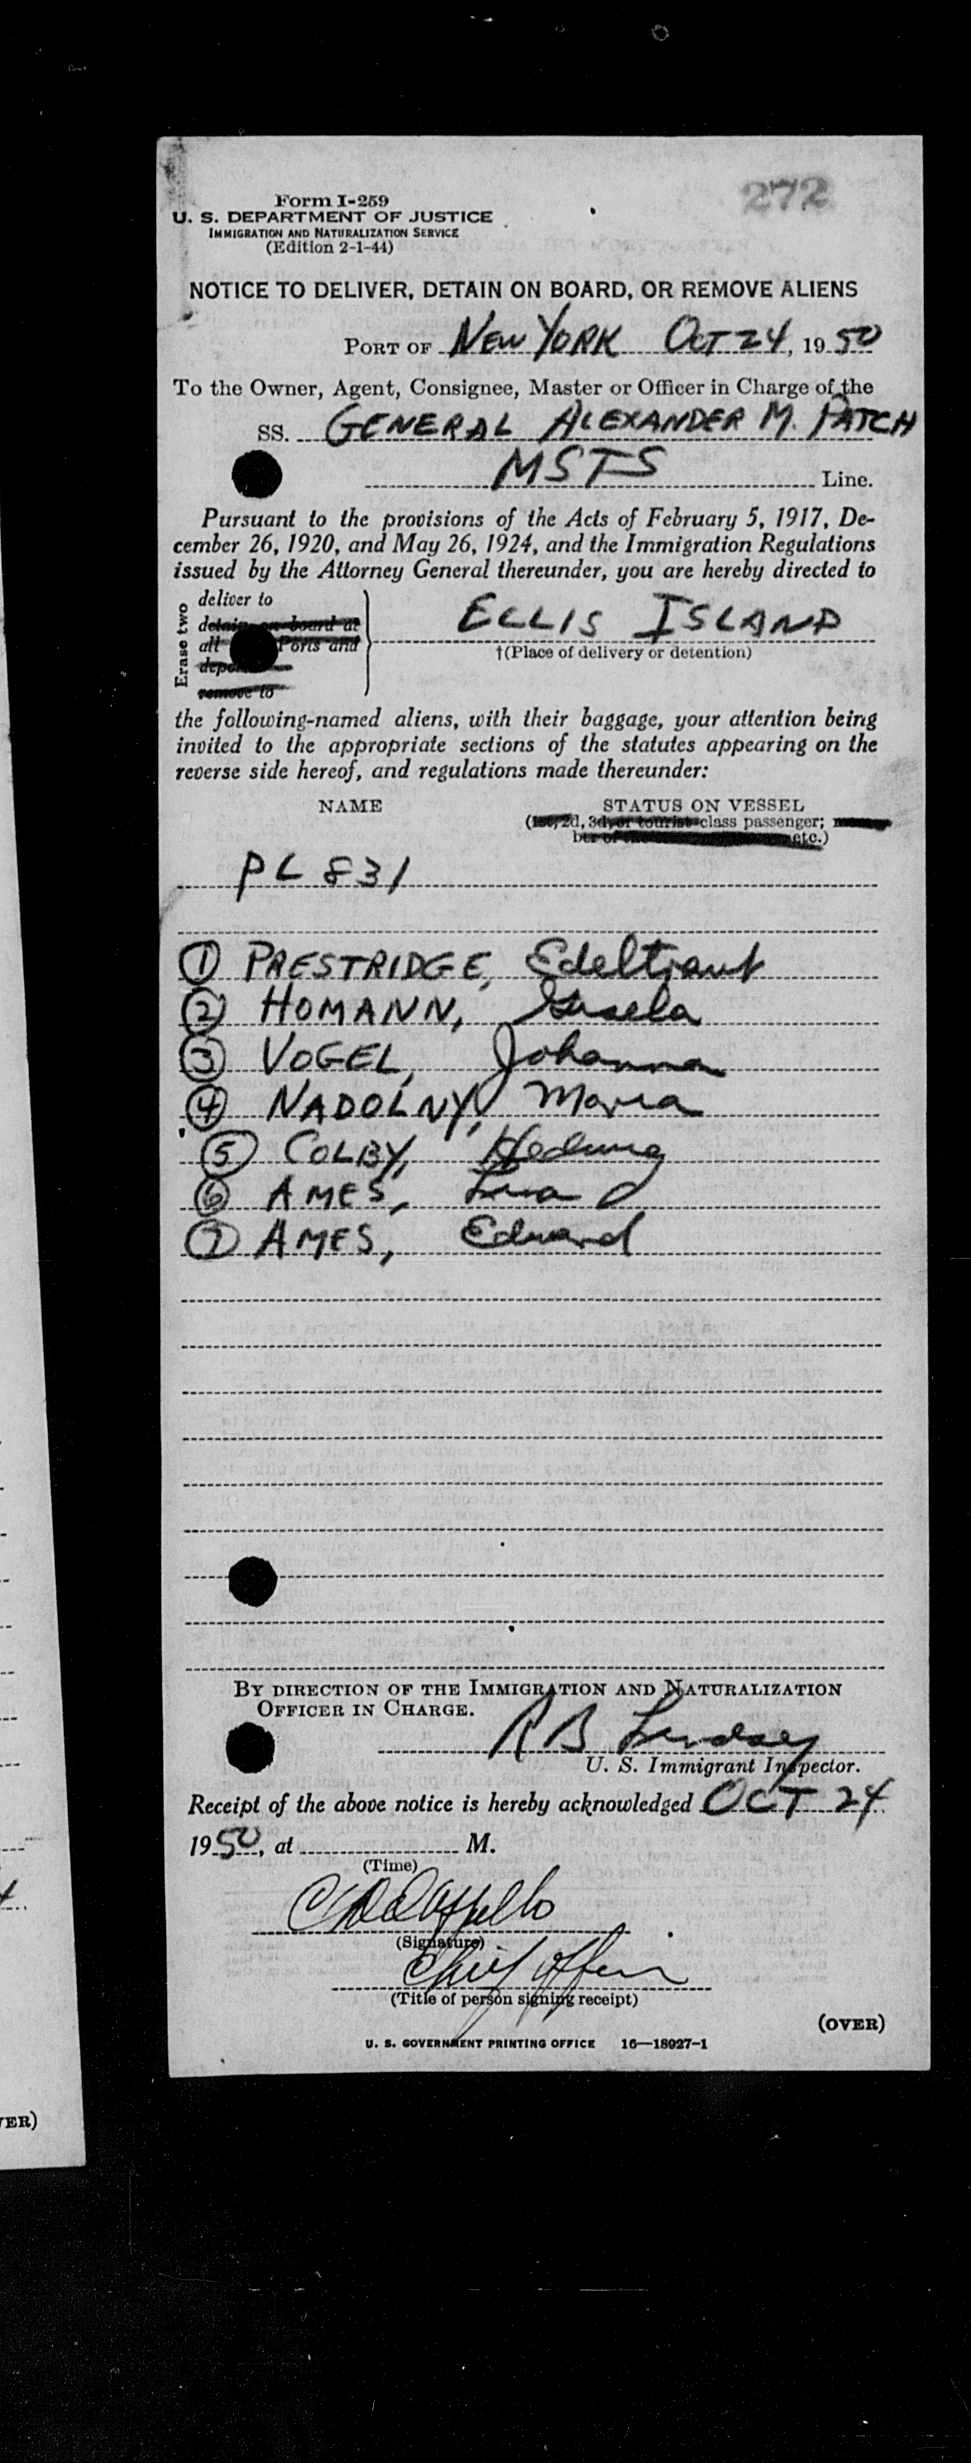 272
Form I-259
U. S. DEPARTMENT OF JUSTICE
IMMIGRATION AND NATURALIZATION SERVICE
(Edition 2-1-44)
NOTICE TO DELIVER, DETAIN ON BOARD, OR REMOVE ALIENS
PORT OF NEW YORK OCT 24, 1950
To the Owner, Agent, Consignee, Master or Officer in Charge of the
SS. GENERAL ALEXANDER M. PATCH
MSTS Line.
Pursuant to the provisions of the Acts of February 5, 1917, De-
cember 26, 1920, and May 26, 1924, and the Immigration Regulations
issued by the Attorney General thereunder, you are hereby directed to
Erase two
deliver to
detain on board at
all Ports and
remove to
ELLIS ISLAND
†(Place of delivery or detention)
the following-named aliens, with their baggage, your attention being
invited to the appropriate sections of the statutes appearing on the
reverse side hereof, and regulations made thereunder:
NAME STATUS ON VESSEL
(1st, 2d, 3d, or tourist-class passenger;
ber of etc.)
PL 831
1 PRESTRIDGE, Edeltraut
2 HOMANN, Gisela
3 VOGEL, Johanna
4 NADOLNY, Maria
5 COLBY, Hedwig
6 AMES,
7 AMES, Edward
BY DIRECTION OF THE IMMIGRATION AND NATURALIZATION
OFFICER IN CHARGE.
R B Lindsay
U. S. Immigrant Inspector.
Receipt of the above notice is hereby acknowledged OCT 24
1950, at M.
(Time)
(Signature)
Chief Officer
(Title of person signing receipt)
(OVER)
U. S. GOVERNMENT PRINTING OFFICE 16—18027-1
VER)